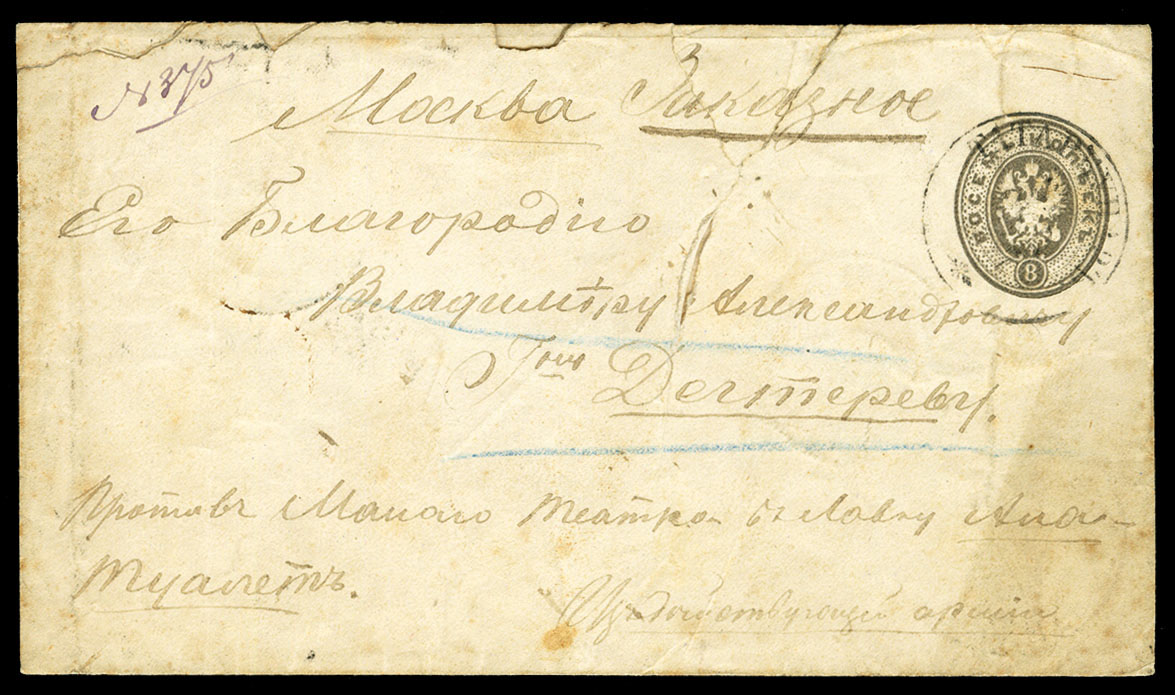 № 375
Москва Заказное
Его Благородію
Владиміру Александровичу
Гну Дегтереву.
Противъ Малаго Театра въ Лавку Ала-
Туалетъ.
Изъ дѣйствующей арміи
ВОСЕМЬ КОПѢЕКЪ
8